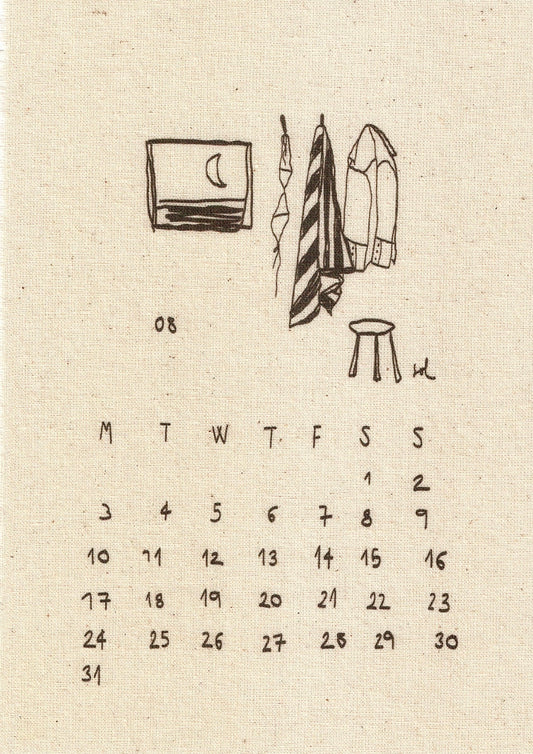 08
M T W T F S S
1 2
3 4 5 6 7 8 9
10 11 12 13 14 15 16
17 18 19 20 21 22 23
24 25 26 27 28 29 30
31